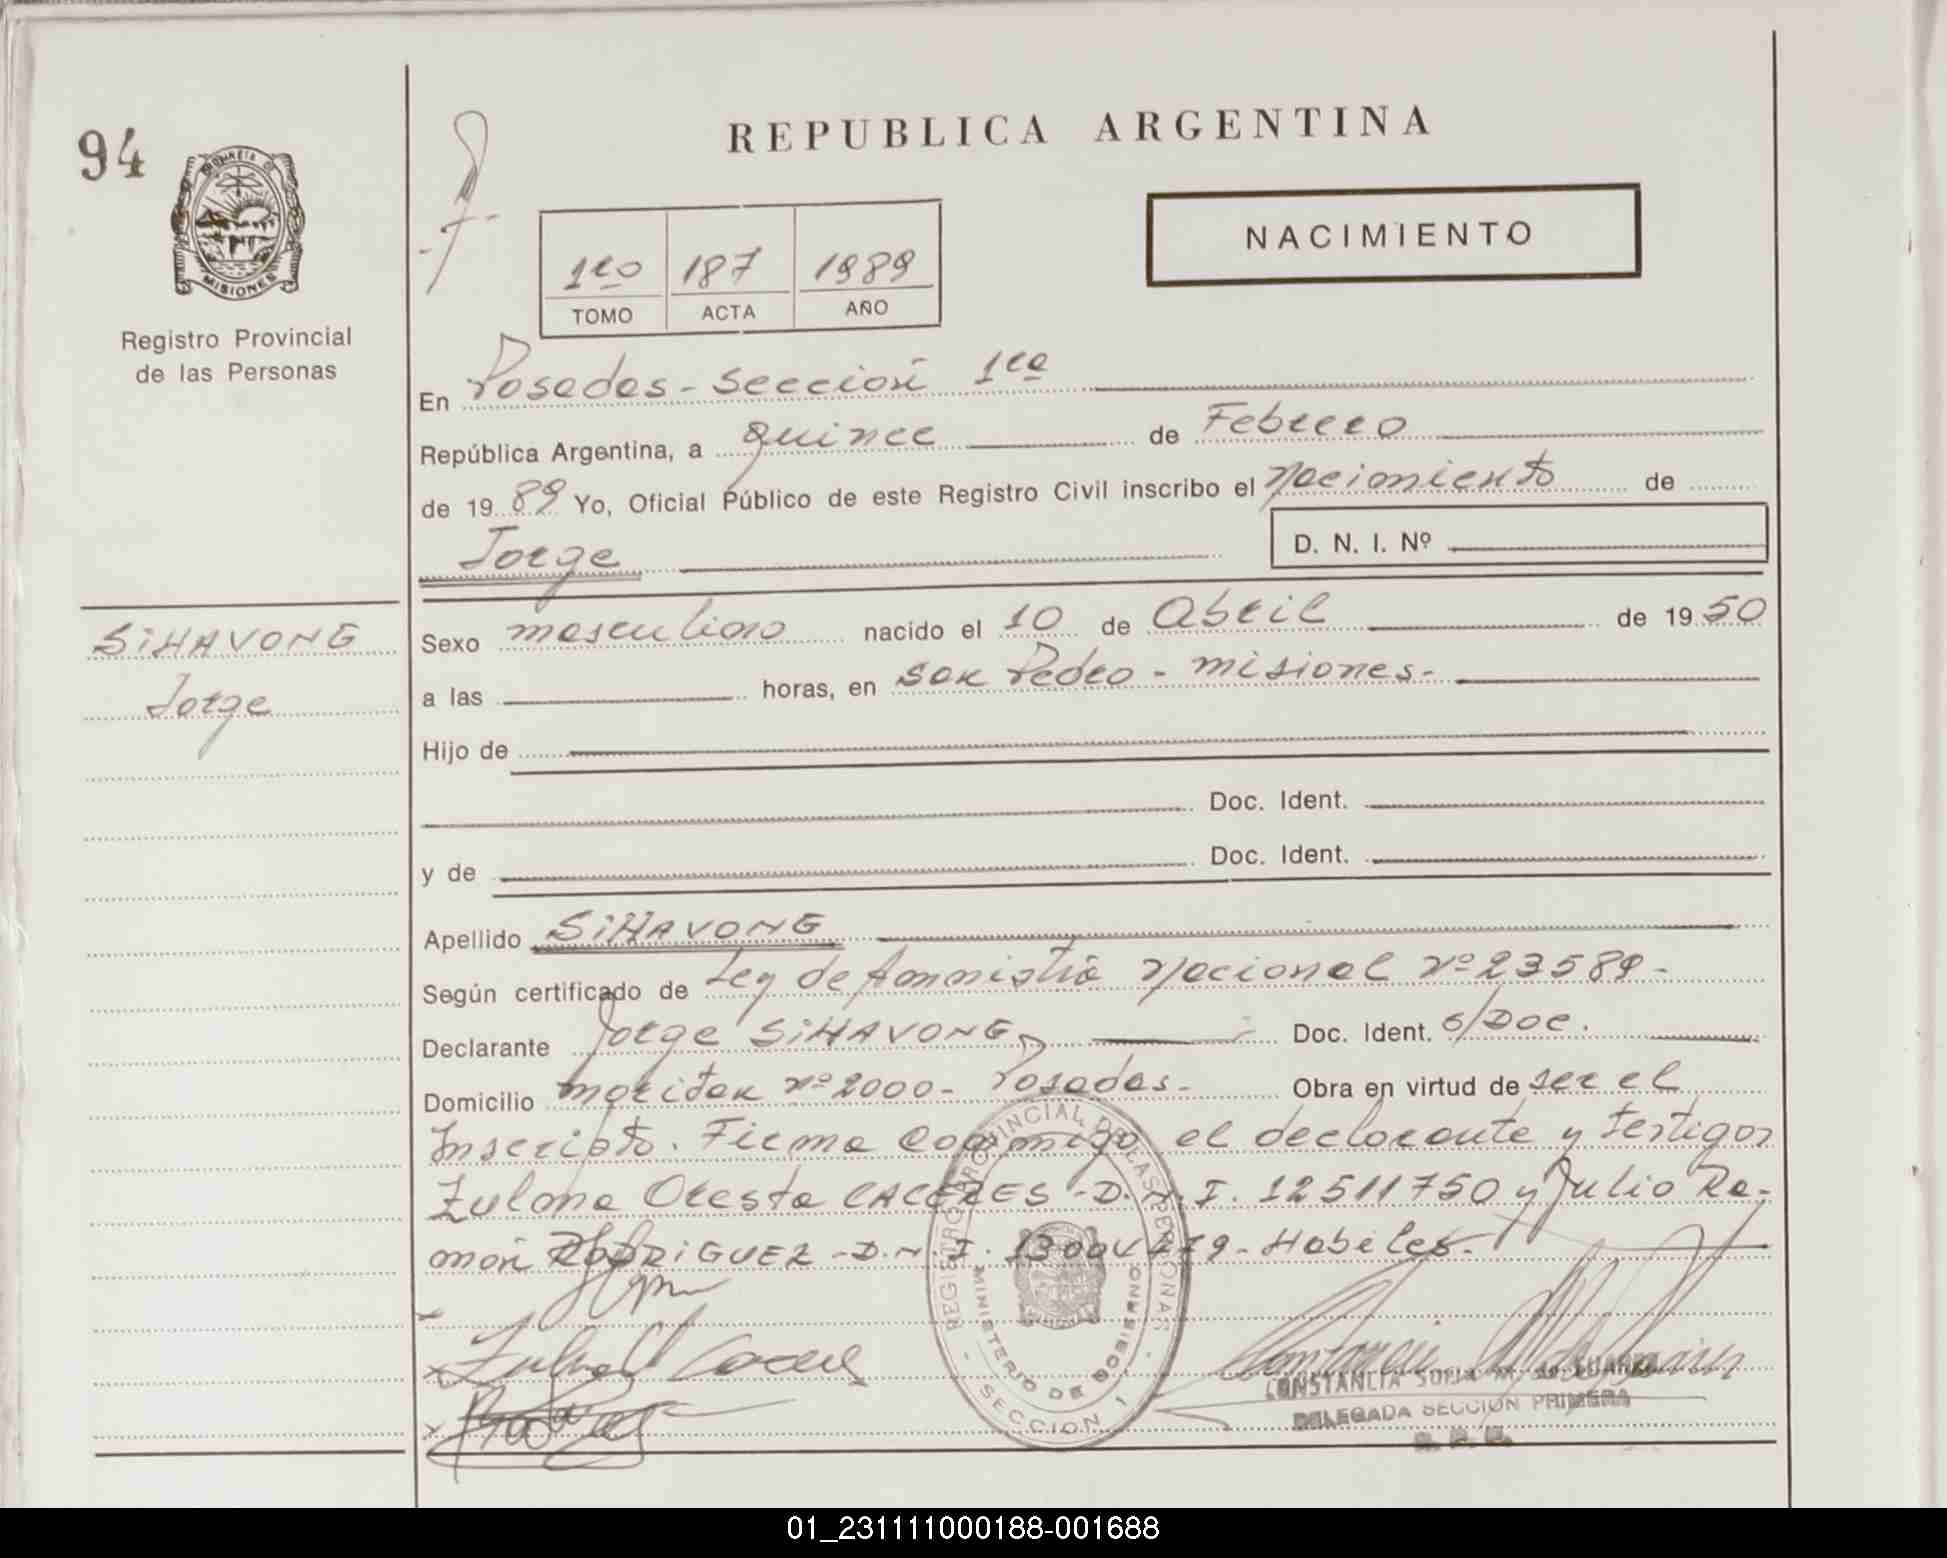 94
REPUBLICA ARGENTINA
PROVINCIA DE
MISIONES
NACIMIENTO
1ro 187 1989
TOMO ACTA AÑO
Registro Provincial
de las Personas
En Posadas - Sección 1ra
República Argentina, a quince de Febrero
de 1989 Yo, Oficial Público de este Registro Civil inscribo el Nacimiento de
Jorge D. N. I. Nº
SiHAVONG
Jorge
Sexo masculino nacido el 10 de Abril de 1950
a las horas, en San Pedro - Misiones -
Hijo de
Doc. Ident.
y de Doc. Ident.
Apellido SiHAVONG
Según certificado de Ley de Amnistía Nacional Nº 23589 -
Declarante Jorge SiHAVONG Doc. Ident. S/Doc.
Domicilio Nº 2000 - Posadas - Obra en virtud de ser el
Inscripto. Firma conmigo el declarante y testigos
Zulma Oresta CACERES - D.N.I. 12511750 y Julio Ra-
món RODRiGUEZ - D.N.I. - Habiles -
REGISTRO PROVINCIAL DE LAS PERSONAS
MINISTERIO DE GOBIERNO
- SECCION 1 -
CONSTANCIA SOFIA M. DE SUAREZ
DELEGADA SECCION PRIMERA
01_231111000188-001688